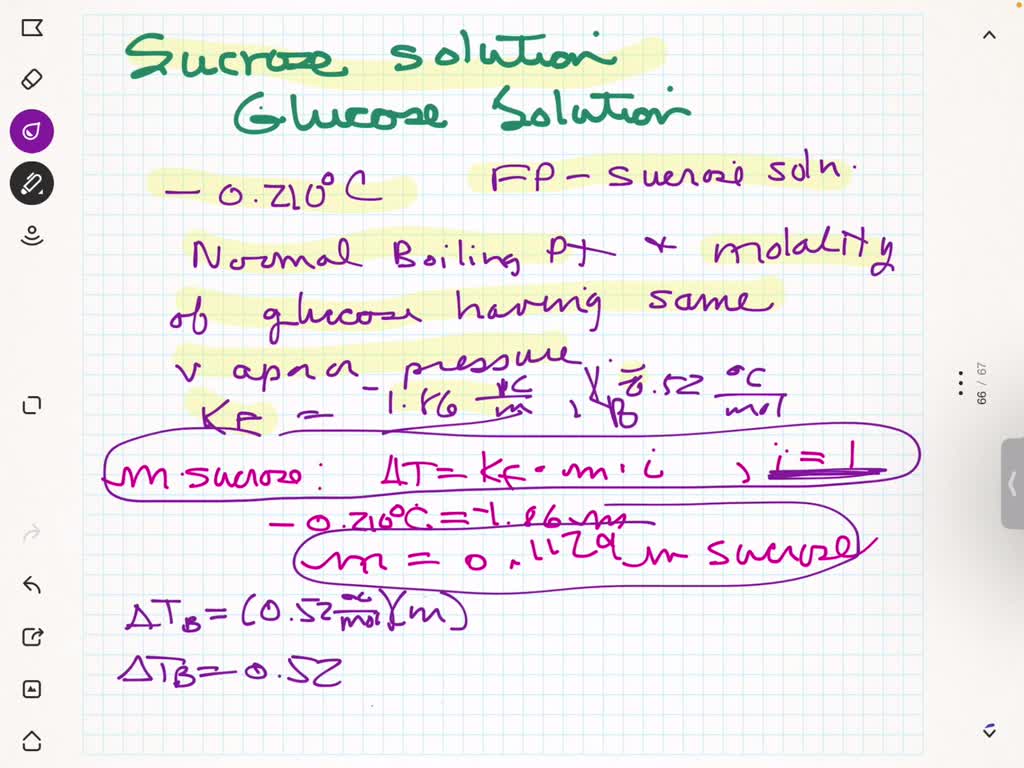 Sucrose solution
Glucose Solution
- 0.210°C FP - sucrose soln.
Normal Boiling Pt + molality
of glucose having same
vapor pressure
KF = 1.86 °C/m , KB = 0.52 °C/mol
m sucrose: ΔT = KF · m · i , i = 1
- 0.210°C = -1.86 m
m = 0.1129 m sucrose
ΔTB = (0.52 °C/mol)(m)
ΔTB = 0.52
66 / 67